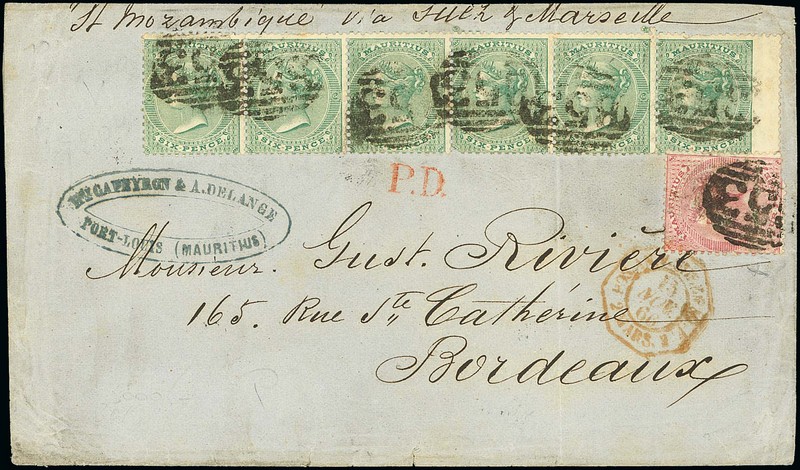 "St Mozambique" via Suez & Marseille
MAURITIUS MAURITIUS MAURITIUS MAURITIUS MAURITIUS MAURITIUS
SIX PENCE SIX PENCE SIX PENCE SIX PENCE SIX PENCE SIX PENCE
P.D.
MAURITIUS
& A. DELANGE
PORT-LOUIS (MAURITIUS)
Monsieur. Gust. Rivière
165. Rue Ste Catherine
Bordeaux